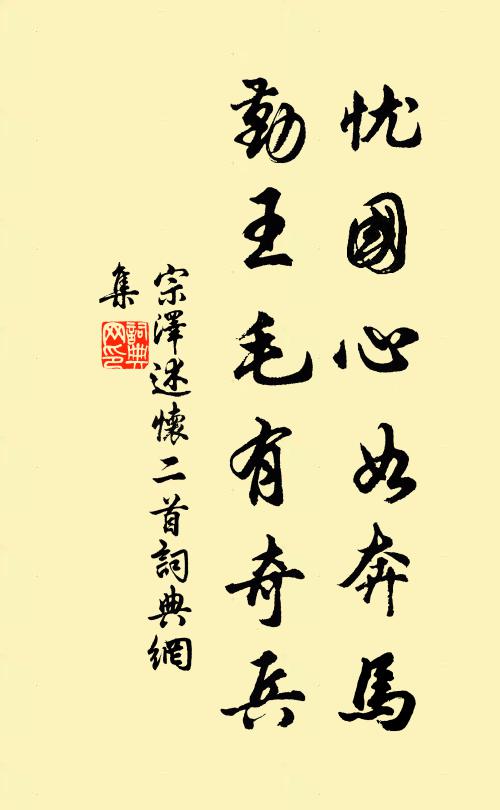 忧國心如奔馬
勤王毛有奇兵
宗澤述懷二首詞典網
集
詞典
网印